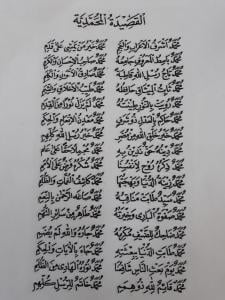 القصيدة المحمدية
محمد أشرف الأعراب والعجم محمد خير من يمشي على قدم
محمد باسط المعروف جامعه محمد صاحب الإحسان والكرم
محمد تاج رسل الله قاطبة محمد صادق الأقوال والكلم
محمد ثابت الميثاق حافظه محمد طيب الأخلاق والشيم
محمد رويت بالنور طينته محمد لم يزل نورا من القدم
محمد حاكم بالعدل ذو شرف محمد معدن الإنعام والحكم
محمد خير خلق الله من مضر محمد خير رسل الله كلهم
محمد دينه حق ندين به محمد مجملا حقا على علم
محمد ذكره روح لأنفسنا محمد شكره فرض على الأمم
محمد زينة الدنيا وبهجتها محمد كاشف الغمات والظلم
محمد سيد طابت مناقبه محمد صاغه الرحمن بالنعم
محمد صفوة الباري وخيرته محمد طاهر من سائر التهم
محمد ضاحك للضيف مكرمه محمد جاره والله لم يضم
محمد طابت الدنيا ببعثته محمد جاء بالآيات والحكم
محمد يوم بعث الناس شافعنا محمد نوره الهادي من الظلم
محمد قائم لله ذو همم محمد خاتم للرسل كلهم